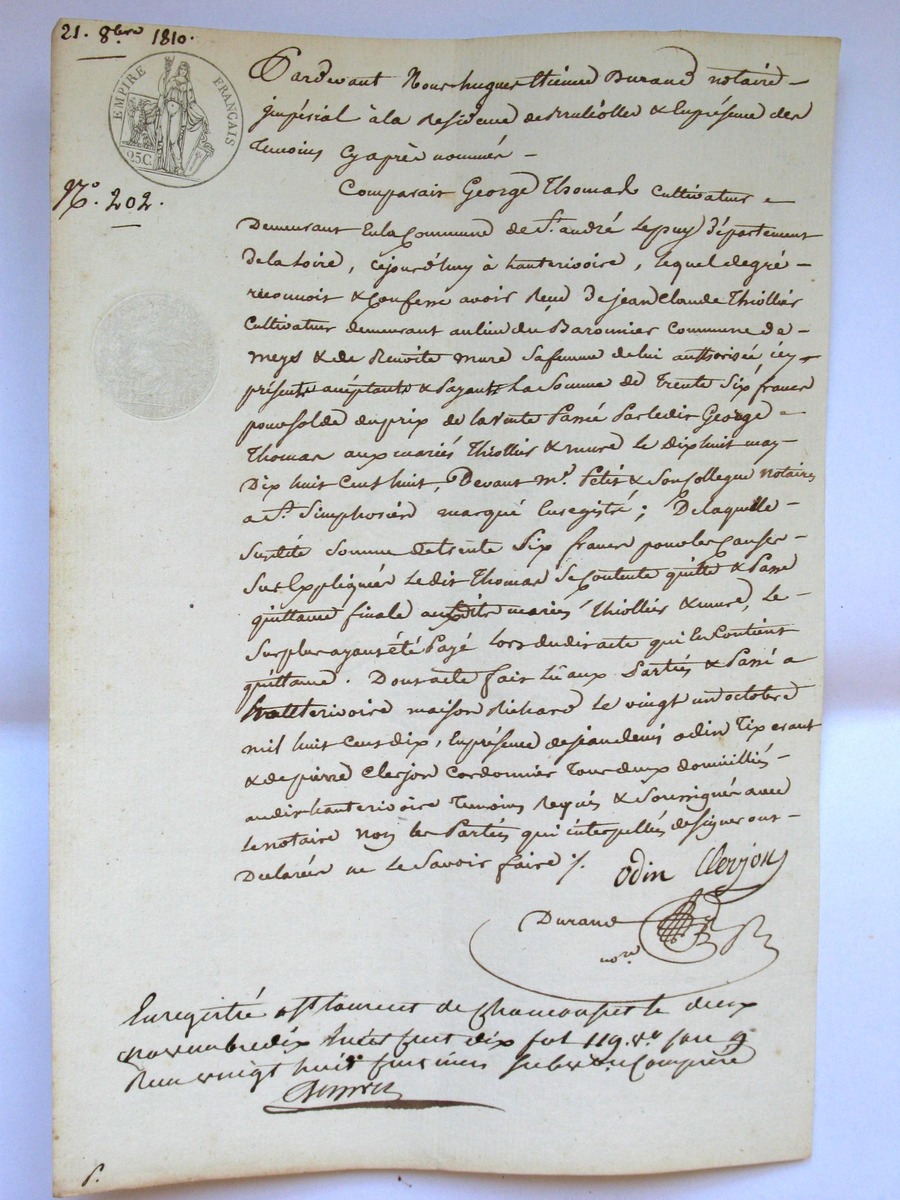 21. 8.bre 1810.
EMPIRE FRANÇAIS
25C.
N.o 202.
Pardevant Nous hugues Etienne Durand notaire
jmpérial à la Residence de Bruliolles & En présence des
temoins Cy après nommés
Comparait George Thomas Cultivateur
Demeurant En la Commune de St. andré Lepuy département
de la Loire, cejourd'huy à hauterivoire, lequel de gré
reconnoit & Confesse avoir Reçu de jean Claude Thiollier
Cultivateur demeurant au lieu du Barounier Commune de
meys & de Benoite mure sa femme de lui authorisée icy
présents acceptants & Payants La Somme de Trente Six francs
pour solde du prix de la Vente Passé Par ledit George
Thomas aux mariés Thiollier & mure le dix huit may
Dix huit Cent huit, Devant m.e Petit & Son Collegue notaires
a St. Simphorien marqué Enregistré; De laquelle
Susdite Somme de trente Six francs pour les Causes
Sus Expliquées Ledit Thomas Se Contente quitte & Passe
quittance finale auxdits mariés Thiollier & mure, Le
Surplus ayant été Payé lors dudit acte qui En Contient
quittance. Dont acte fait Lû aux Parties & Passé a
hauterivoire maison Richard Le vingt un octobre
mil huit Cent dix, En présence de jean denis odin Tixerant
& de pierre Clerjon Cordonnier Tous deux domiciliés
audit hauterivoire Temoins Requis & Soussignés avec
Le notaire Non les Parties qui interpellés de signer ont
Declarés ne Le Savoir faire ./.
odin Clerjon
Durand
no.re
Enregistré a St laurent de Chamousset le deux
novembre dix huit Cent dix fol 119 v.o Case 9
Reçu vingt huit Centimes Subv.on Comprise